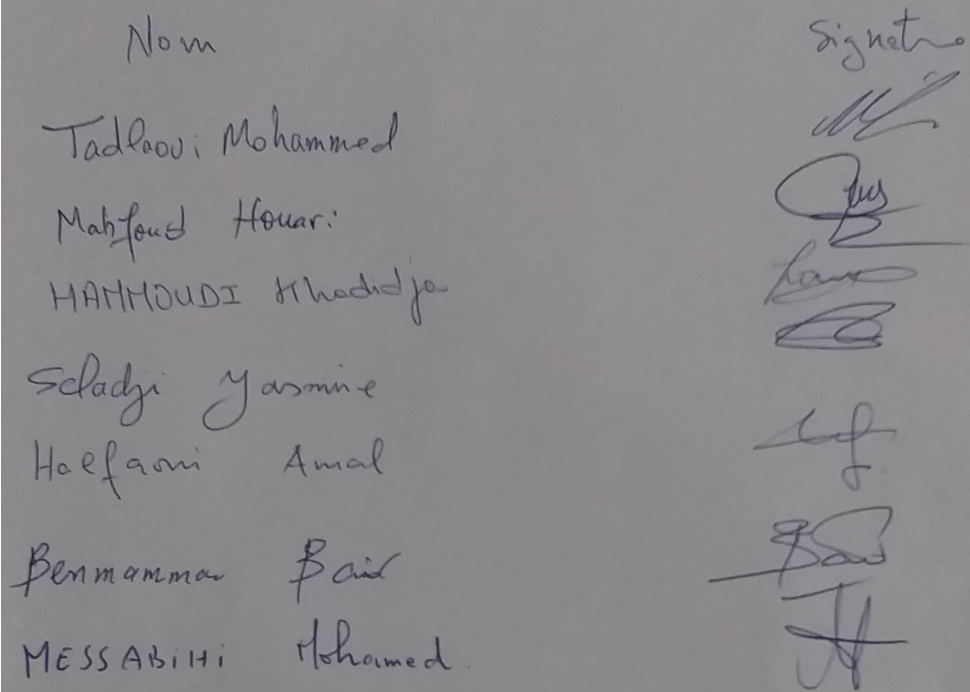 Nom Signature
Tadlaoui Mohammed
Mahfoud Houari
HAMMOUDI Khadidja
Seladji Yasmine
Halfaoui Amal
Benmammar Badr
MESSABIHI Mohamed